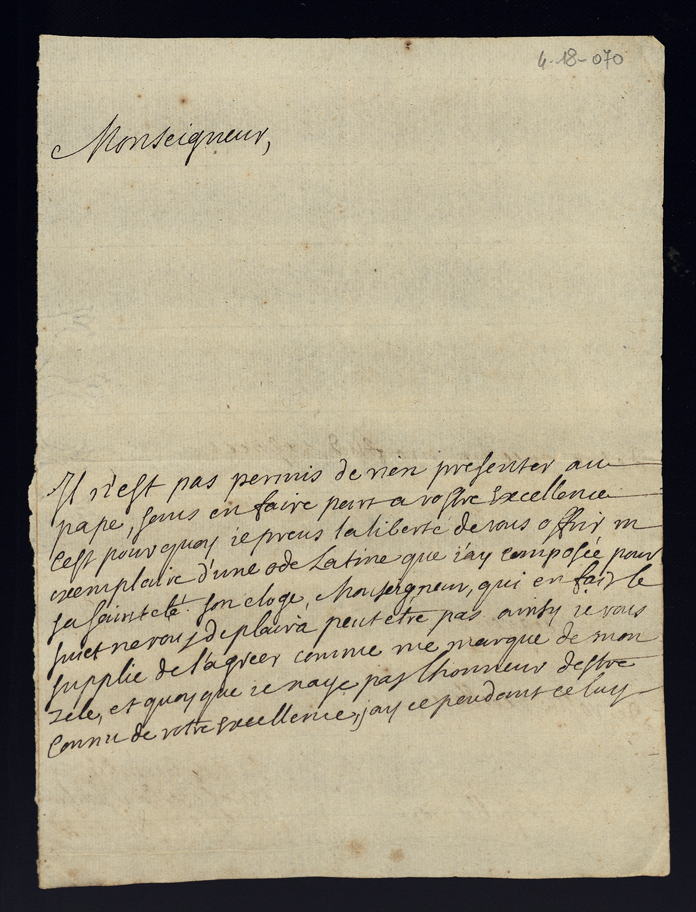 4-18-070
Monseigneur,
Il n'est pas permis de rien presenter au
pape, sans en faire part a vostre Excellence
c'est pourquoy ie prens la liberté de vous offrir un
exemplaire d'une ode Latine que i'ay composée pour
sa sainteté. son eloge, Monseigneur, qui en fait le
suiet ne vous deplaira peut etre pas ainsy ie vous
supplie de l'agreer comme une marque de mon
zele, et quoy que ie n'aye pas l'honneur d'estre
connu de votre Excellence, j'ay ce pendant celuy